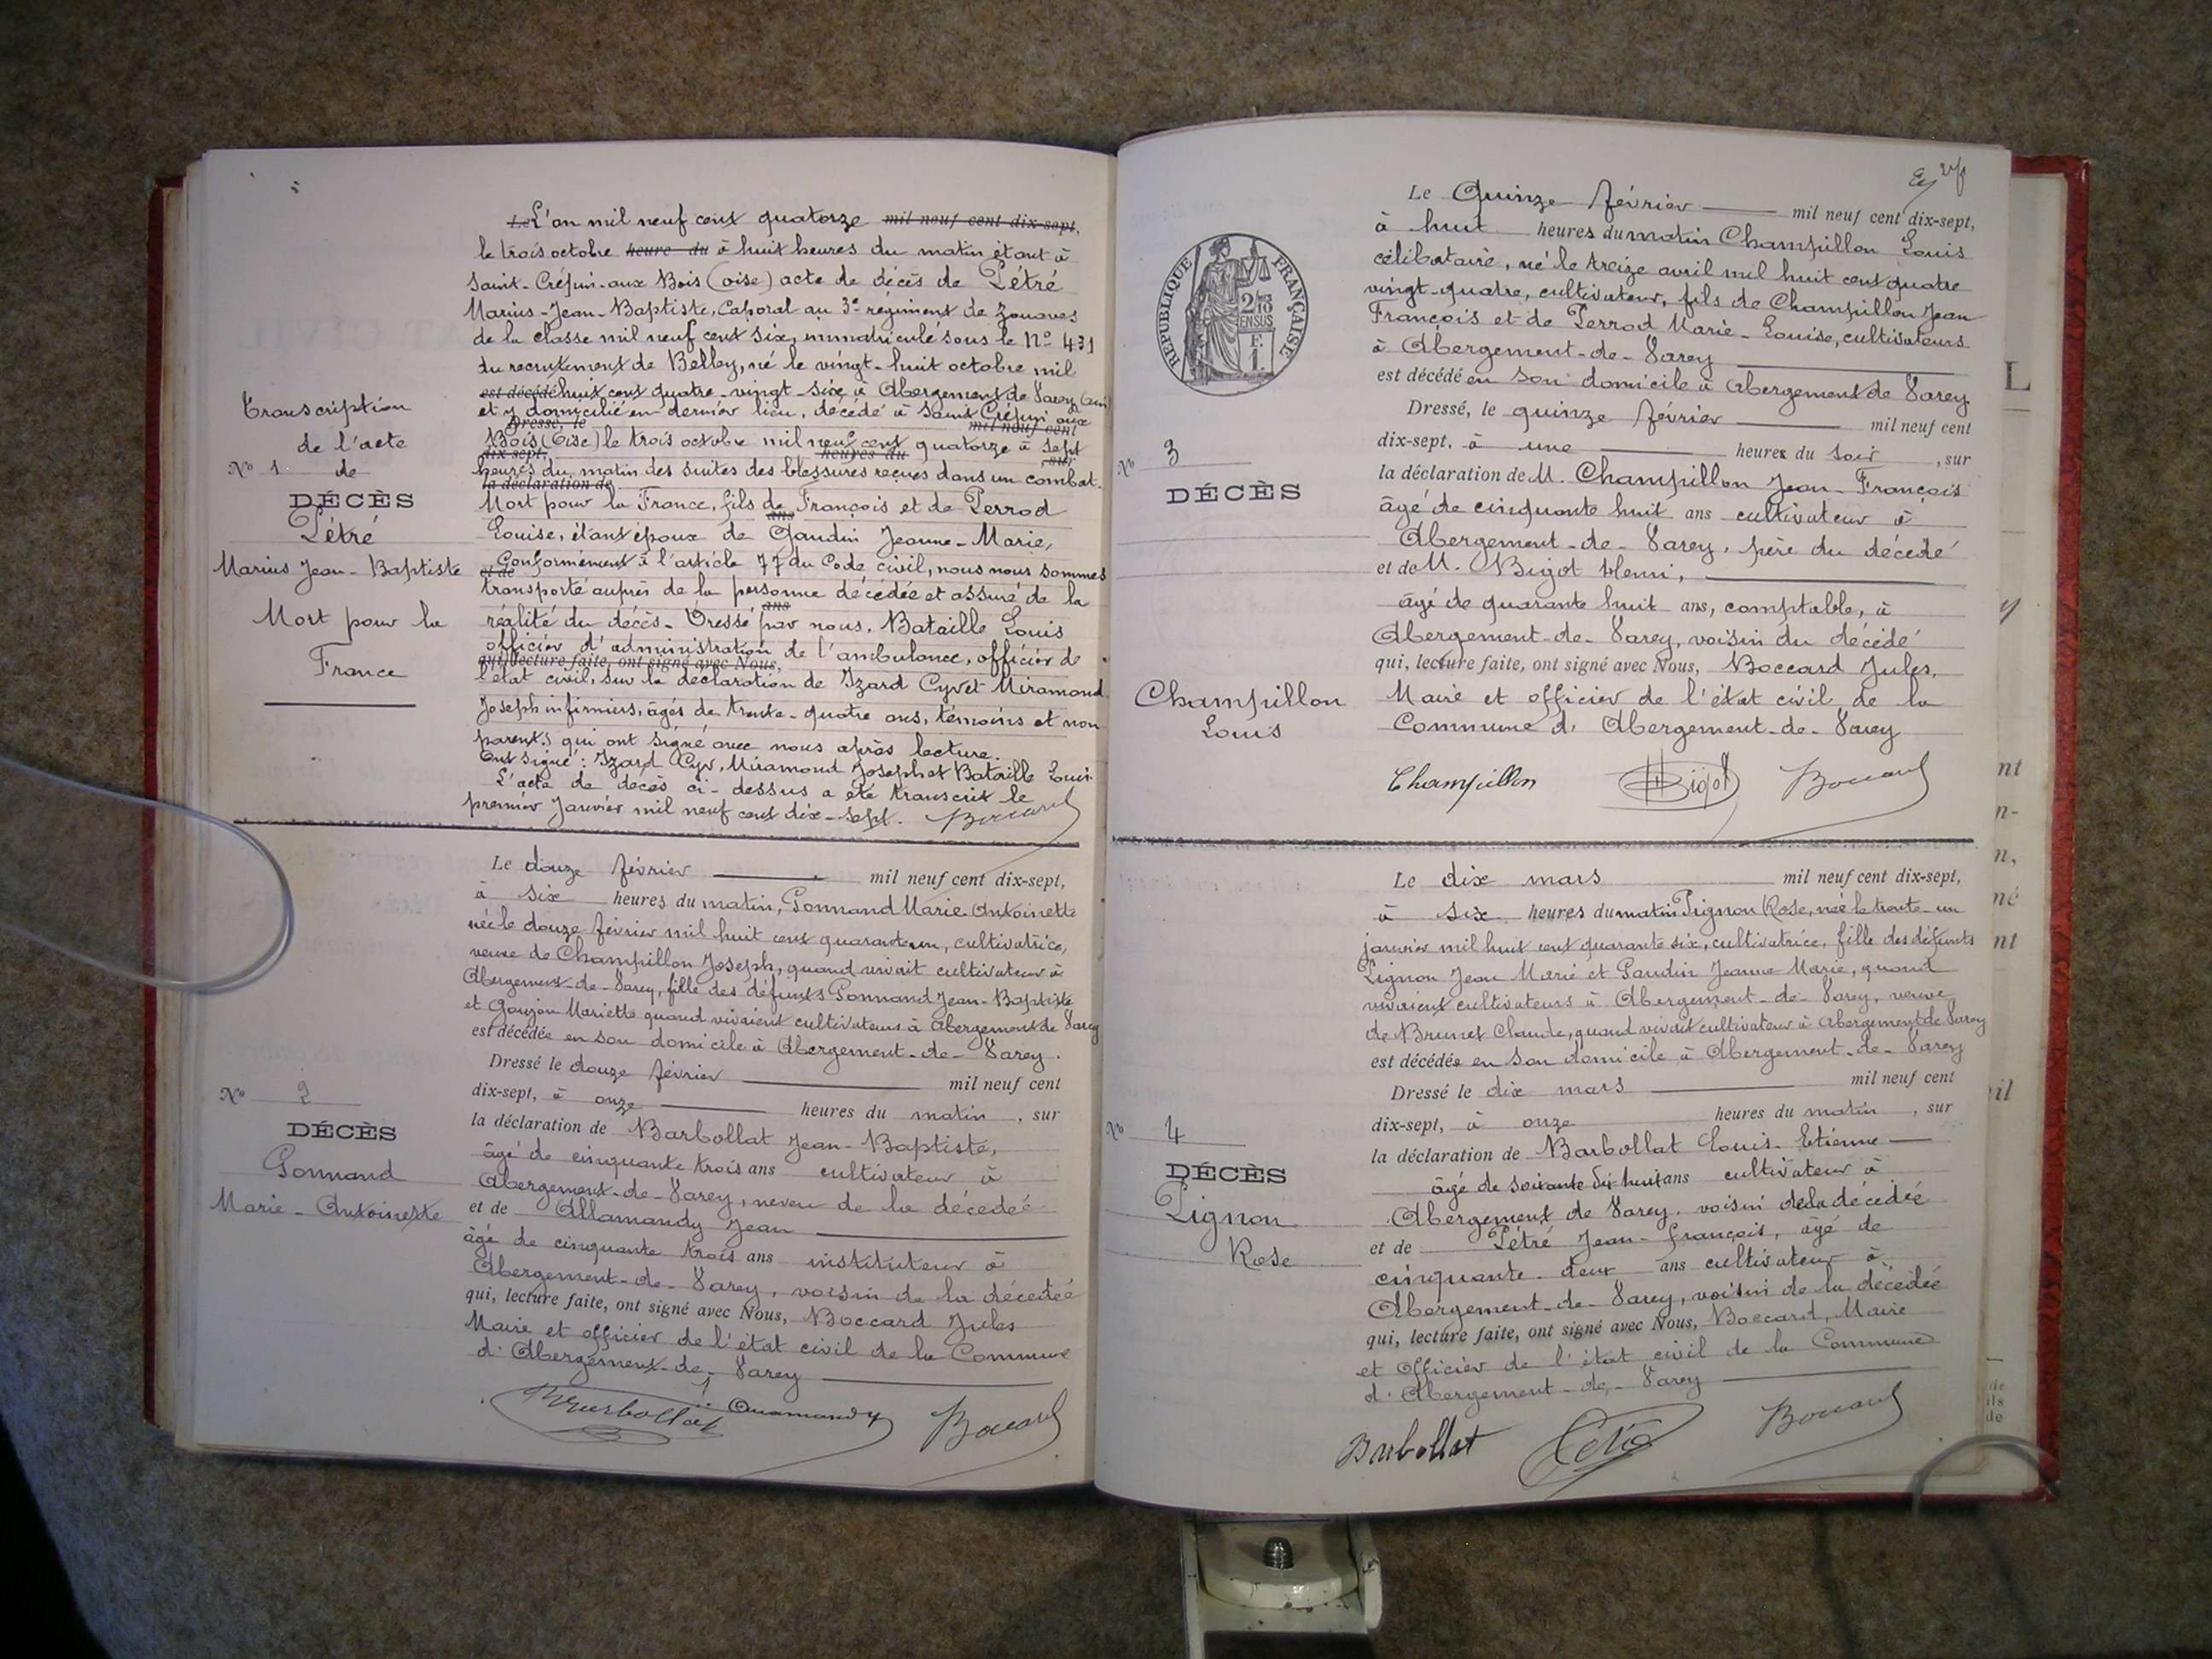 L'an mil neuf cent quatorze mil neuf cent dix-sept,
le trois octobre heure du à huit heures du matin étant à
Saint-Crépin-aux Bois (oise) acte de décès de Pétré
Marius-Jean-Baptiste, Caporal au 3e régiment de zouaves
de la classe mil neuf cent six, immatriculé sous le No 431
du recrutement de Belley, né le vingt-huit octobre mil
est décédé huit cent quatre-vingt-six à Abergement de Varey (ain)
et y domicilié en dernier lieu, décédé à Saint Crépin aux
Dressé, le mil neuf cent
Bois (Oise) le trois octobre mil neuf cent quatorze à sept
dix-sept, heures du , sur
heures du matin des suites des blessures reçues dans un combat.
la déclaration de
Mort pour la France, fils de François et de Perrod
ans
Louise, étant époux de Gaudin Jeanne-Marie,
Conformément à l'article 77 du Code civil, nous nous sommes
et de
transporté auprès de la personne décédée et assuré de la
ans
réalité du décès. Dressé par nous, Bataille Louis
officier d'administration de l'ambulance, officier de
qui, lecture faite, ont signé avec Nous,
l'état civil, sur la déclaration de Izard Cyr et Miramond
Joseph infirmiers, âgés de trente-quatre ans, témoins et non
parents qui ont signé avec nous après lecture.
Ont signé : Izard Cyr, Miramond Joseph et Bataille Louis.
L'acte de décès ci-dessus a été transcrit le
premier Janvier mil neuf cent dix-sept. Boccard
Transcription
de l'acte
No 1 de
DÉCÈS
Pétré
Marius Jean-Baptiste
Mort pour la
France
Le douze février mil neuf cent dix-sept,
à six heures du matin, Gonnand Marie Antoinette
née le douze février mil huit cent quarante un, cultivatrice,
veuve de Champillon Joseph, quand vivait cultivateur à
Abergement-de-Varey, fille des défunts Gonnand Jean-Baptiste
et Goujon Mariette quand vivaient cultivateurs à Abergement de Varey
est décédée en son domicile à Abergement-de-Varey.
Dressé le douze février mil neuf cent
dix-sept, à onze heures du matin , sur
la déclaration de Barbollat Jean-Baptiste,
âgé de cinquante trois ans cultivateur à
Abergement-de-Varey, neveu de la décédée
et de Allamandy Jean
âgé de cinquante trois ans instituteur à
Abergement-de-Varey, voisin de la décédée
qui, lecture faite, ont signé avec Nous, Boccard Jules
Maire et officier de l'état civil de la Commune
d'Abergement-de-Varey
Barbollat Allamandy Boccard
No 2
DÉCÈS
Gonnand
Marie-Antoinette
Le Quinze février mil neuf cent dix-sept,
à huit heures du matin Champillon Louis
célibataire, né le treize avril mil huit cent quatre
vingt-quatre, cultivateur, fils de Champillon Jean
François et de Perrod Marie-Louise, cultivateurs
à Abergement-de-Varey
est décédé en son domicile à Abergement de Varey
Dressé, le quinze février mil neuf cent
dix-sept, à une heures du soir , sur
la déclaration de M. Champillon Jean-François
âgé de cinquante huit ans cultivateur à
Abergement-de-Varey, père du décédé
et de M. Bigot Henri,
âgé de quarante huit ans, comptable, à
Abergement-de-Varey, voisin du décédé
qui, lecture faite, ont signé avec Nous, Boccard Jules,
Maire et officier de l'état civil de la
Commune d'Abergement-de-Varey
Champillon HBigot Boccard
RÉPUBLIQUE FRANÇAISE
2/10 EN SUS
F.
1.
No 3
DÉCÈS
Champillon
Louis
Le dix mars mil neuf cent dix-sept,
à six heures du matin Pignon Rose, née le trente-un
janvier mil huit cent quarante six, cultivatrice, fille des défunts
Pignon Jean Marie et Gaudin Jeanne Marie, quand
vivaient cultivateurs à Abergement-de-Varey, veuve
de Brunet Claude, quand vivait cultivateur à Abergement de Varey
est décédée en son domicile à Abergement-de-Varey
Dressé le dix mars mil neuf cent
dix-sept, à onze heures du matin , sur
la déclaration de Barbollat Louis-Etienne
âgé de soixante dix huit ans cultivateur à
Abergement de Varey, voisin de la décédée
et de Pétré Jean-François, âgé de
cinquante-deux ans cultivateur à
Abergement-de-Varey, voisin de la décédée
qui, lecture faite, ont signé avec Nous, Boccard, Maire
et Officier de l'état civil de la Commune
d'Abergement-de-Varey
Barbollat Boccard
No 4
DÉCÈS
Pignon
Rose